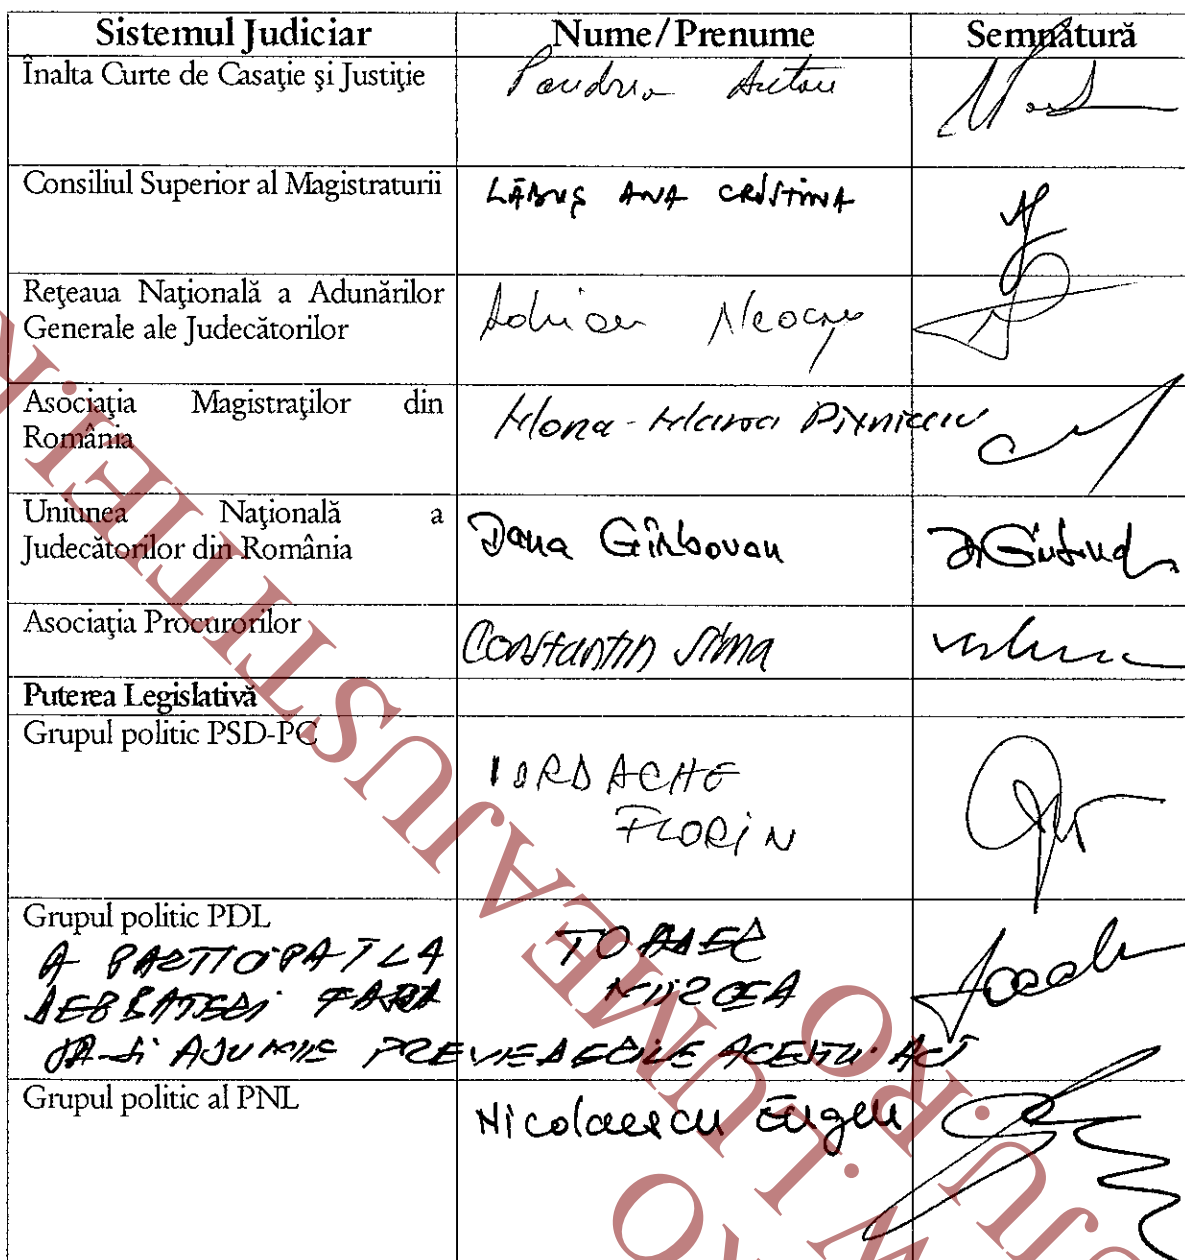 Sistemul Judiciar Nume/Prenume Semnătură
Înalta Curte de Casaţie şi Justiţie Pandrea Anton
Consiliul Superior al Magistraturii LĂBUŞ ANA CRISTINA
Reţeaua Naţională a Adunărilor
Generale ale Judecătorilor Adrian Neacşu
Asociaţia Magistraţilor din
România Mona-Maria Pivniceru
Uniunea Naţională a
Judecătorilor din România Dana Gîrbovan
Asociaţia Procurorilor Constantin Sima
Puterea Legislativă
Grupul politic PSD-PC
IORDACHE
FLORIN
Grupul politic PDL
A PARTICIPAT LA TOADER
DEZBATERI FARA MIRCEA
SA-SI ASUME PREVEDERILE ACESTUI ACT
Grupul politic al PNL Nicolaescu Eugen
LUMEAJUSTITIEI.R